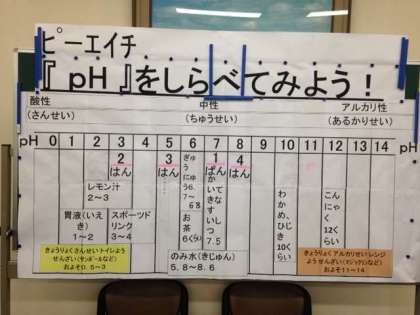 ピーエイチ
『pH』をしらべてみよう！
酸性
(さんせい)
中性
(ちゅうせい)
アルカリ性
(あるかりせい)
pH 0 1 2 3 4 5 6 7 8 9 10 11 12 13 14 pH
2
はん
3
はん
1
はん
4
はん
レモン汁
2～3
胃液(いえき)
1～2
スポーツドリンク
3～4
ぎゅうにゅう
6.7～6.8
お茶
6くらい
かいてきなすいしつ
7.5
わかめ、ひじき
10くらい
こんにゃく
12くらい
のみ水(きじゅん)
5.8～8.6
きょうりょくさんせいトイレよう
せんざい(サンポールなど)
およそ0.5～3
きょうりょくアルカリせいレンジ
ようせんざい(マジックリンなど)
およそ11～14